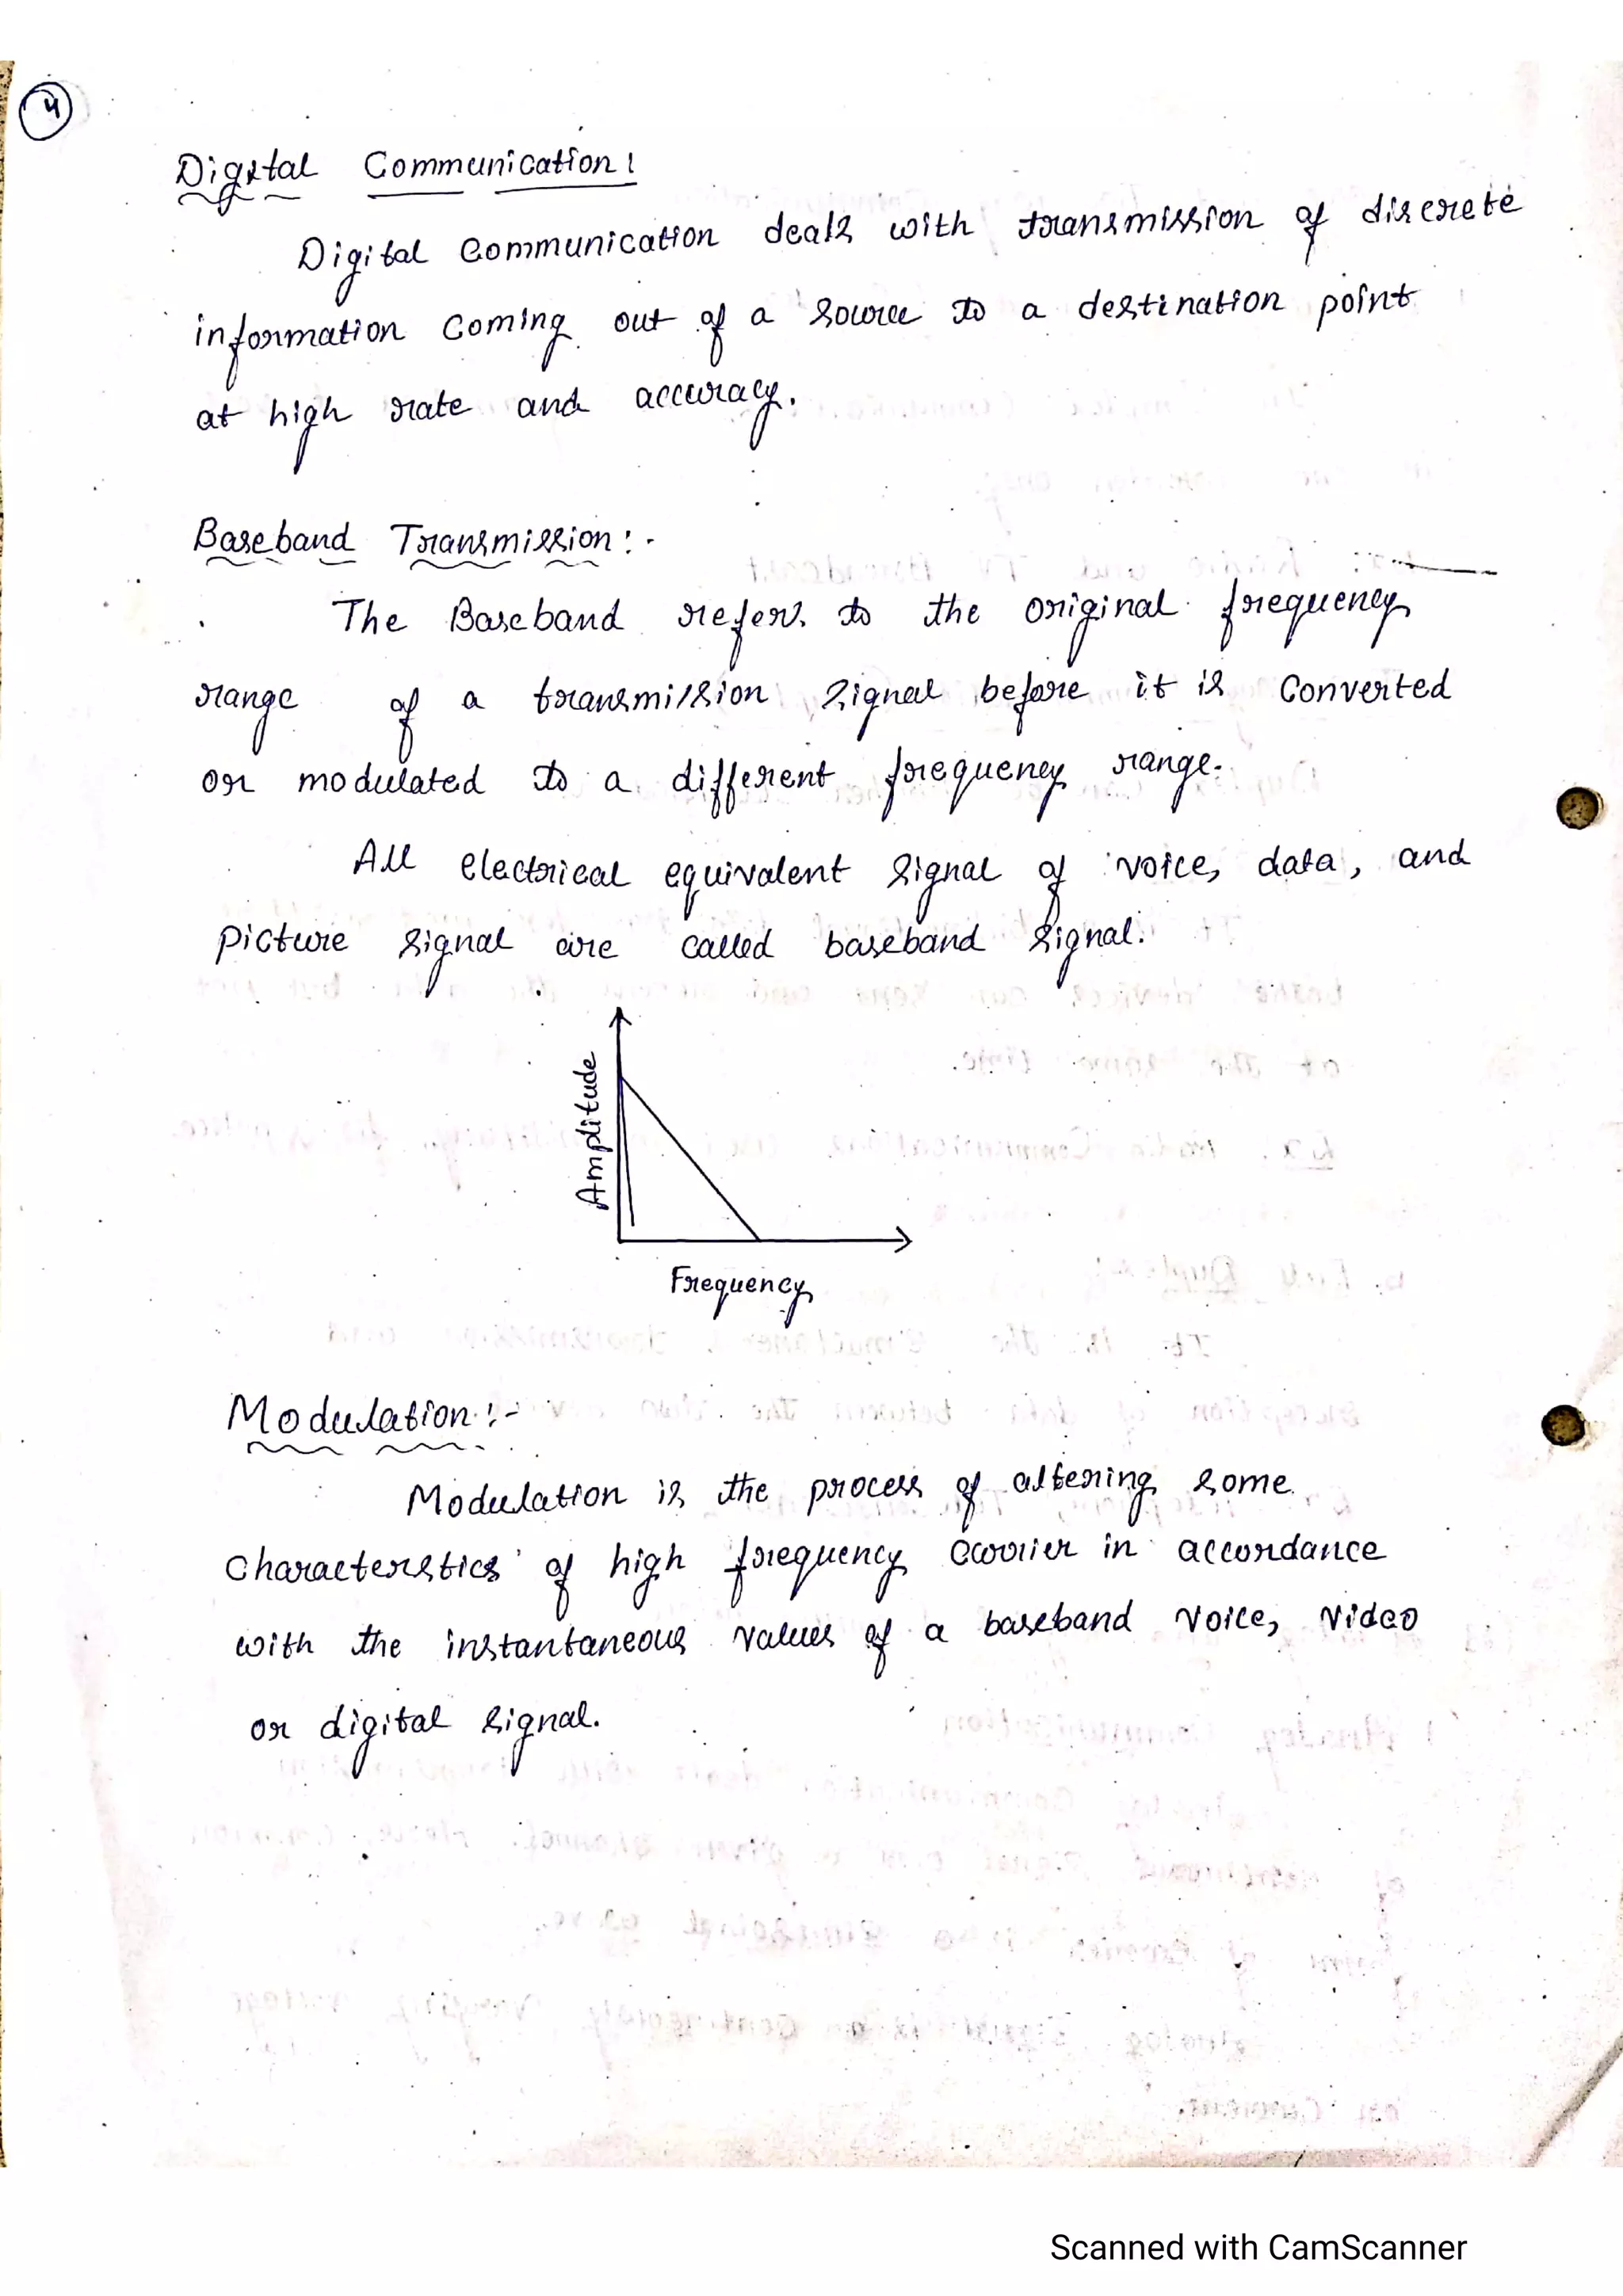 4
Digital Communication:
Digital Communication deals with transmission of discrete
information coming out of a source to a destination point
at high rate and accuracy.
Baseband Transmission:-
The Baseband refers to the original frequency
range of a transmission signal before it is Converted
or modulated to a different frequency range.
All electrical equivalent signal of voice, data, and
picture signal are called baseband signal.
Amplitude
Frequency
Modulation:-
Modulation is the process of altering some
characterstics of high frequency carrier in accordance
with the instantaneous values of a baseband voice, video
or digital signal.
Scanned with CamScanner